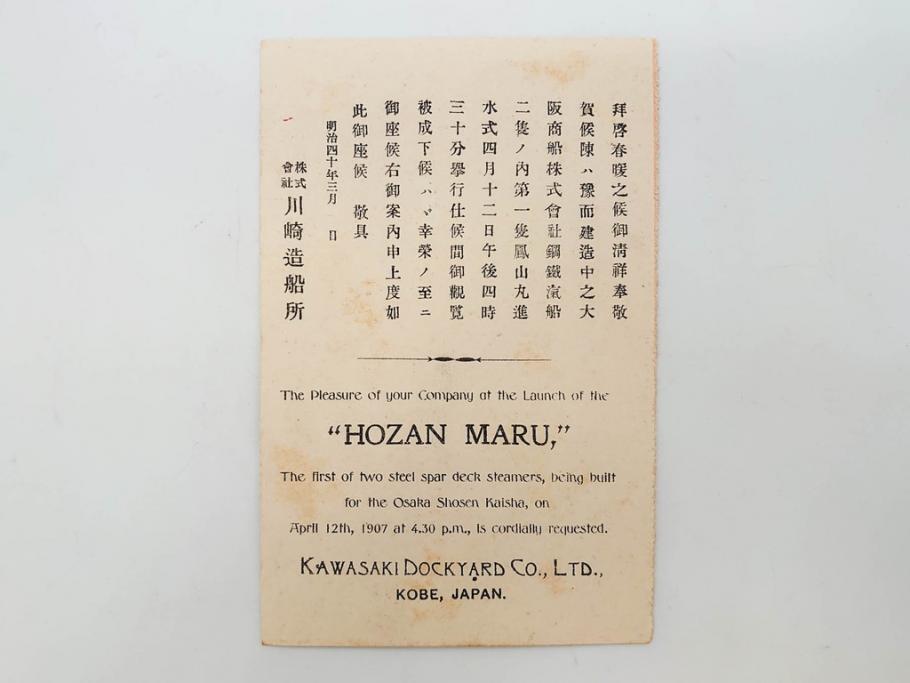 拜啓春暖之候御淸祥奉敬
賀候陳ハ豫而建造中之大
阪商船株式會社鋼鐵滊船
二隻ノ內第一隻鳳山丸進
水式四月十二日午後四時
三十分擧行仕候間御觀覽
被成下候ハヾ幸榮ノ至ニ
御座候右御案內申上度如
此御座候 敬具
明治四十年三月 日
株式會社川崎造船所
The Pleasure of your Company at the Launch of the
“HOZAN MARU,”
The first of two steel spar deck steamers, being built
for the Osaka Shosen Kaisha, on
April 12th, 1907 at 4.30 p.m., is cordially requested.
KAWASAKI DOCKYARD CO., LTD.,
KOBE, JAPAN.